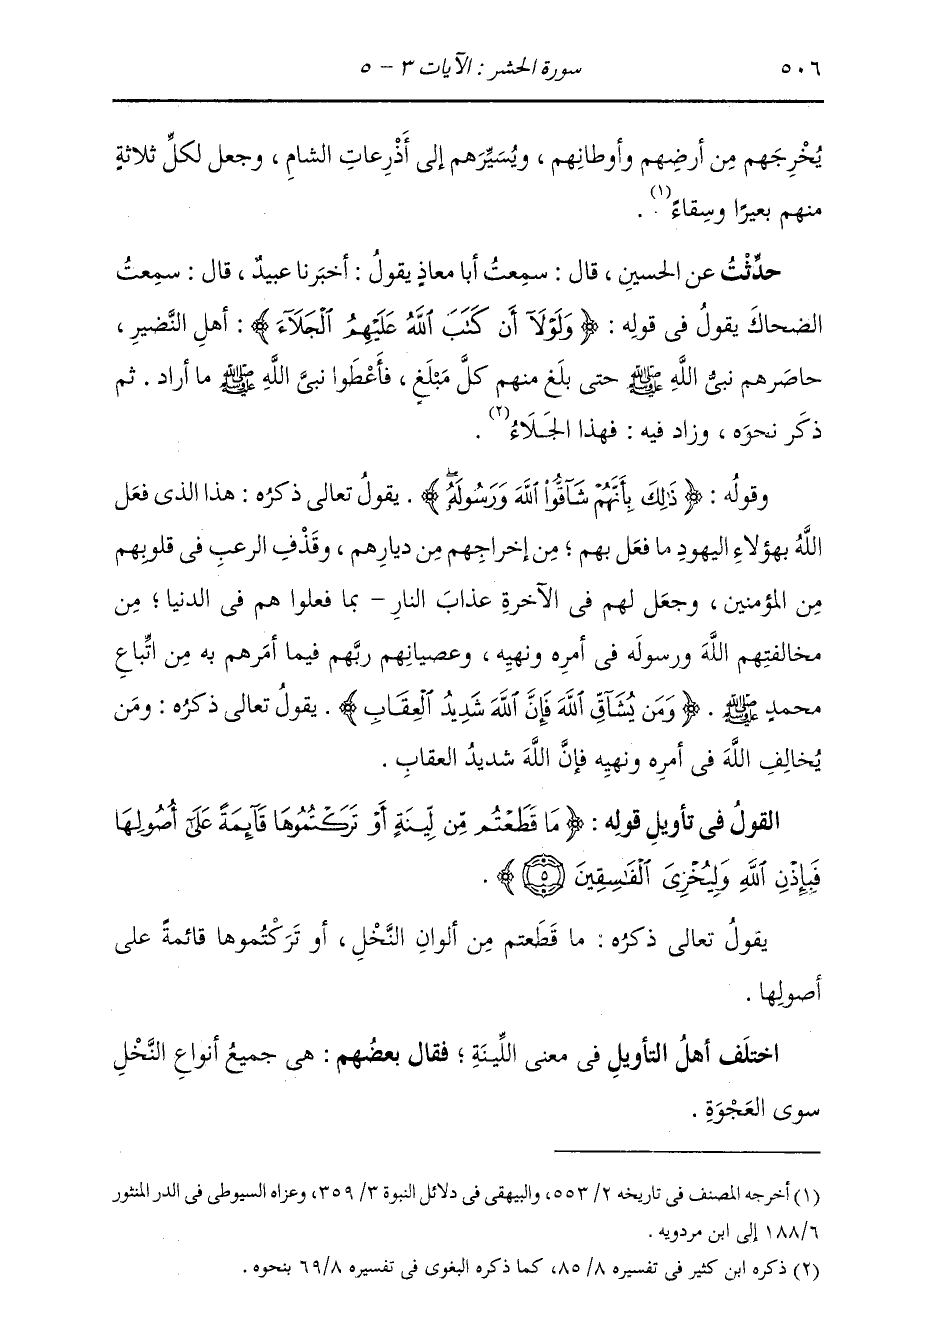 ٥٠٦ سورة الحشر : الآيات ٣ - ٥
يُخْرِجَهم مِن أرضِهم وأوطانِهم ، ويُسَيِّرَهم إلى أَذْرِعاتِ الشامِ ، وجعل لكلِّ ثلاثةٍ
منهم بعيرًا وسِقاءً(١) .
حدِّثْتُ عن الحسينِ ، قال : سمِعتُ أبا معاذٍ يقولُ : أخبَرنا عبيدٌ ، قال : سمِعتُ
الضحاكَ يقولُ فى قولِه : ﴿ وَلَوْلَآ أَن كَتَبَ ٱللَّهُ عَلَيْهِمُ ٱلْجَلَآءَ ﴾ : أهلِ النَّضيرِ ،
حاصَرهم نبىُّ اللَّهِ ﷺ حتى بلَغ منهم كلَّ مَبْلَغٍ ، فأَعْطَوا نبىَّ اللَّهِ ﷺ ما أراد . ثم
ذكَر نحوَه ، وزاد فيه : فهذا الجَلَاءُ(٢) .
وقولُه : ﴿ ذَٰلِكَ بِأَنَّهُمْ شَآقُّوا۟ ٱللَّهَ وَرَسُولَهُۥۖ ﴾ . يقولُ تعالى ذكرُه : هذا الذى فعَل
اللَّهُ بهؤلاءِ اليهودِ ما فعَل بهم ؛ مِن إخراجِهم مِن ديارِهم ، وقَذْفِ الرعبِ فى قلوبِهم
مِن المؤمنين ، وجعَل لهم فى الآخرةِ عذابَ النارِ - بما فعلوا هم فى الدنيا ؛ مِن
مخالفتِهم اللَّهَ ورسولَه فى أمرِه ونهيِه ، وعصيانِهم ربَّهم فيما أمَرهم به مِن اتِّباعِ
محمدٍ ﷺ . ﴿ وَمَن يُشَآقِّ ٱللَّهَ فَإِنَّ ٱللَّهَ شَدِيدُ ٱلْعِقَابِ ﴾ . يقولُ تعالى ذكرُه : ومَن
يُخالِفِ اللَّهَ فى أمرِه ونهيِه فإنَّ اللَّهَ شديدُ العقابِ .
القولُ فى تأويلِ قولِه : ﴿ مَا قَطَعْتُم مِّن لِّينَةٍ أَوْ تَرَكْتُمُوهَا قَآئِمَةً عَلَىٰٓ أُصُولِهَا
فَبِإِذْنِ ٱللَّهِ وَلِيُخْزِىَ ٱلْفَٰسِقِينَ ٥ ﴾ .
يقولُ تعالى ذكرُه : ما قَطَعتم مِن ألوانِ النَّخْلِ ، أو تَرَكْتُموها قائمةً على
أصولِها .
اختلَف أهلُ التأويلِ فى معنى اللِّينَةِ ؛ فقال بعضُهم : هى جميعُ أنواعِ النَّخْلِ
سوى العَجْوَةِ .
(١) أخرجه المصنف فى تاريخه ٢/ ٥٥٣، والبيهقى فى دلائل النبوة ٣/ ٣٥٩، وعزاه السيوطى فى الدر المنثور
١٨٨/٦ إلى ابن مردويه .
(٢) ذكره ابن كثير فى تفسيره ٨/ ٨٥، كما ذكره البغوى فى تفسيره ٦٩/٨ بنحوه .